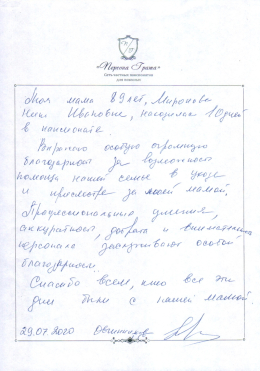 «Первая Грань»
Сеть частных пансионатов
для пожилых
Моя мама 89 лет, Миронова
Нина Ивановна, находилась 10 дней
в пансионате.
Выражаю особую огромную
благодарность за возможность
помощи нашей семье в уходе
и присмотре за моей мамой.
Профессиональные умения,
аккуратность, доброта и внимательность
персонала заслуживают особой
благодарности.
Спасибо всем, кто все эти
дни были с нашей мамой.
29.07.2020